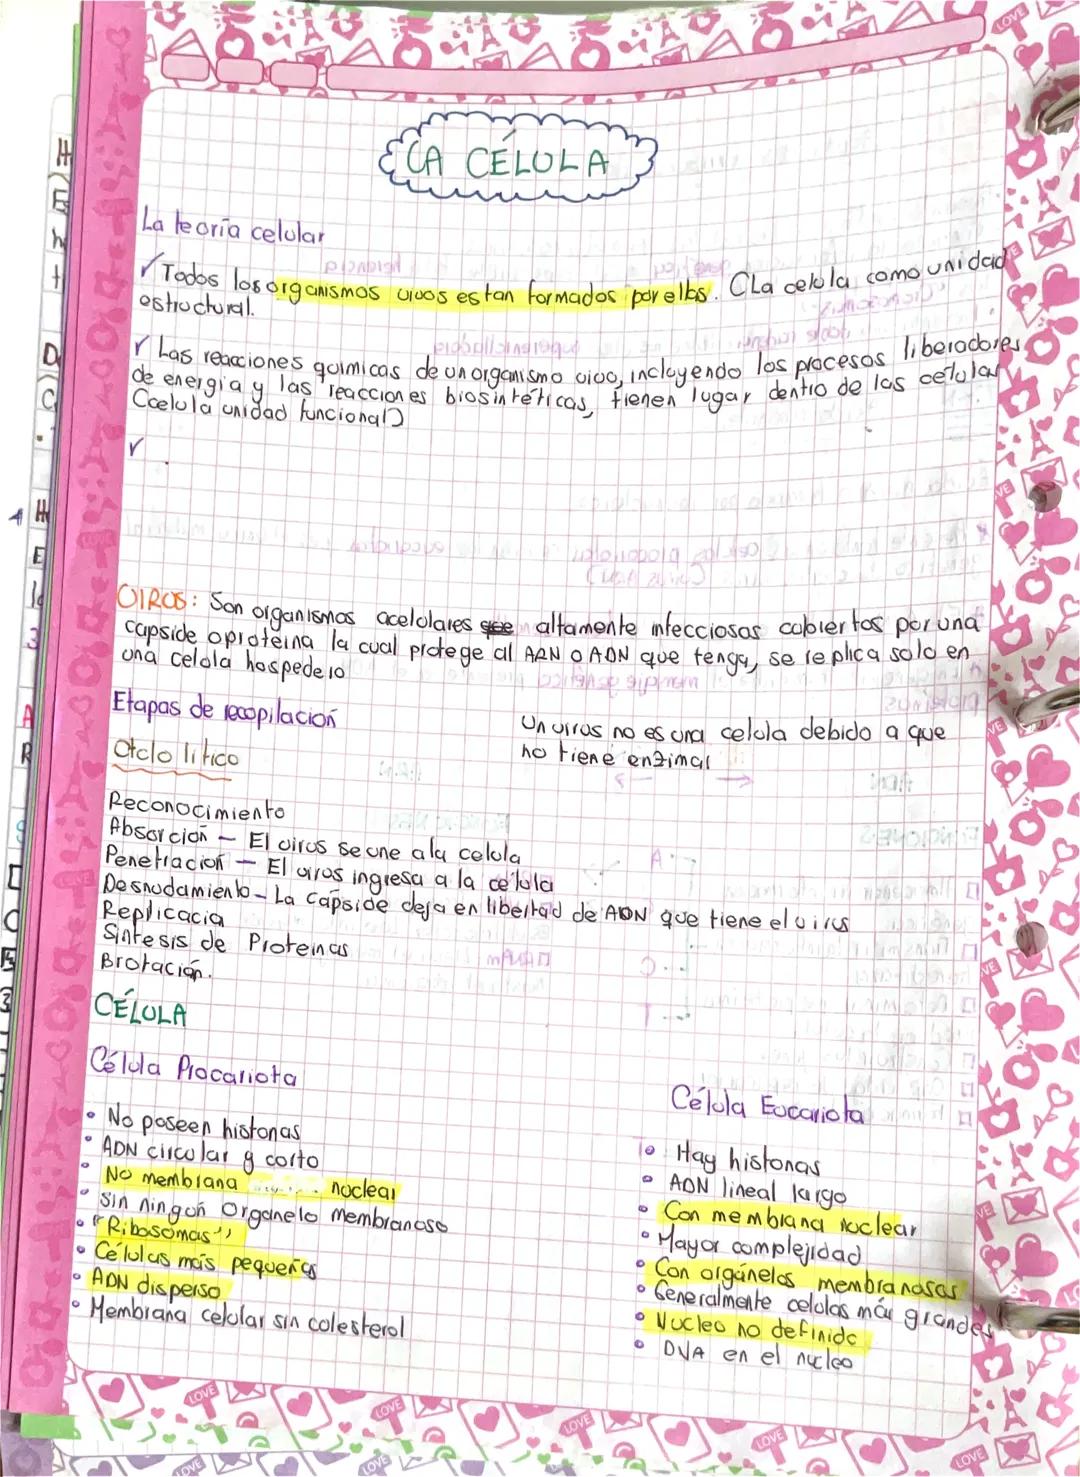 LA CÉLULA
La teoría celular
✓ Todos los organismos vivos estan formados por ellas. (La celula como unidad
estructural.
✓ Las reacciones quimicas de un organismo vivo, incluyendo los procesos liberadores
de energia y las reacciones biosintéticas, tienen lugar dentro de las células
(celula unidad funcional)
✓
VIRUS: Son organismos acelulares altamente infecciosos cubiertos por una
capside o proteína la cual protege al ARN o ADN que tenga, se replica solo en
una celula hospedero
Etapas de recopilación
Un virus no es una celula debido a que
no tiene enzimal
Ciclo lítico
Reconocimiento
Absorción - El virus se une a la celula
Penetración - El virus ingresa a la célula
Desnudamiento - La cápside deja en libertad de ADN que tiene el virus
Replicacia
Sintesis de Proteinas
Brotación.
CÉLULA
Célula Procariota
• No poseen histonas
• ADN circular y corto
• No membrana nuclear
• Sin ningún organelo membranoso
• "Ribosomas"
• Células más pequeñas
• ADN disperso
• Membrana celular sin colesterol
Célula Eucariota
• Hay histonas
• ADN lineal largo
• Con membrana nuclear
• Mayor complejidad
• Con orgánelos membranosos
• Generalmente celulas más grandes
• Nucleo no definido
• DNA en el nucleo
LOVE
LOVE
LOVE
LOVE
LOVE